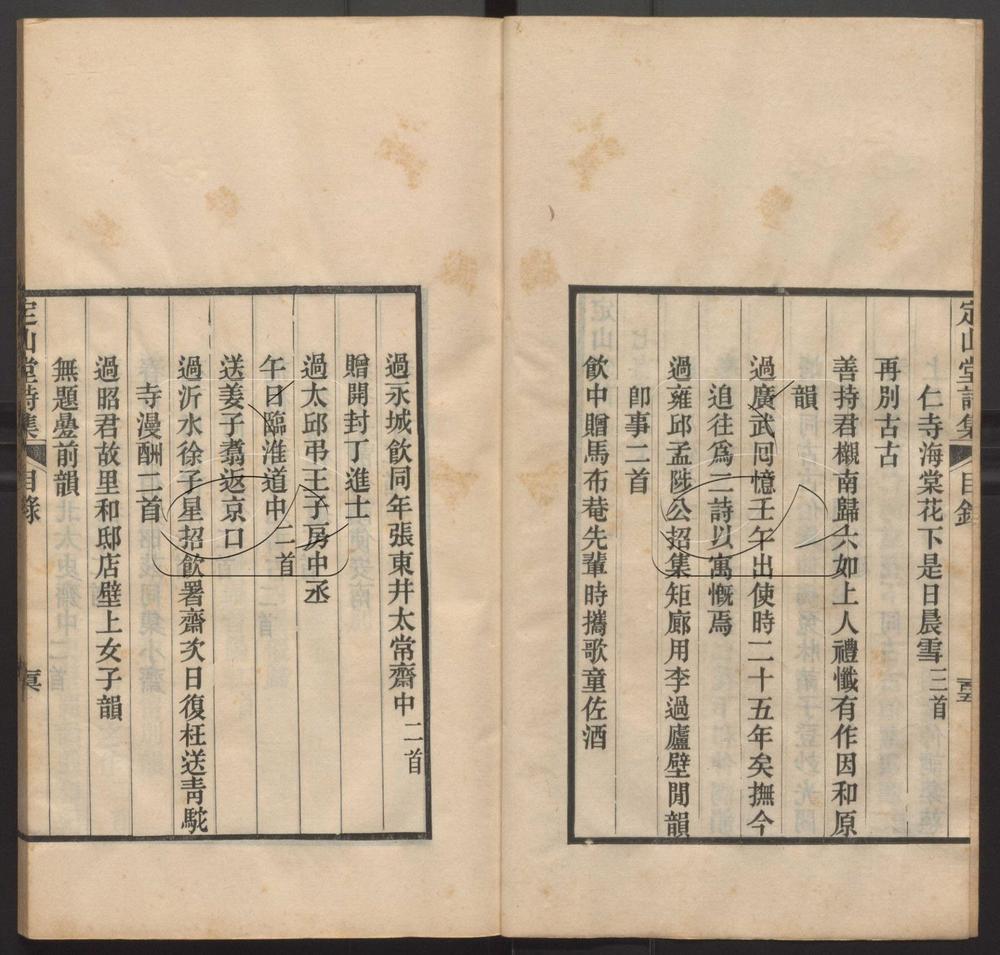 定山堂詩集 目錄
仁寺海棠花下是日晨雪三首
再別古古
善持君櫬南歸六如上人禮懺有作因和原
韻
過廣武囘憶壬午出使時二十五年矣撫今
追往爲二詩以寓慨焉
過雍邱孟陟公招集矩廊用李過廬壁閒韻
卽事二首
飮中贈馬布菴先輩時攜歌童佐酒
過永城飮同年張東井太常齋中二首
贈開封丁進士
過太邱弔王子房中丞
午日臨淮道中二首
送姜子翥返京口
過沂水徐子星招飮署齋次日復枉送靑駝
寺漫酬二首
過昭君故里和邸店壁上女子韻
無題疊前韻
定山堂詩集 目錄